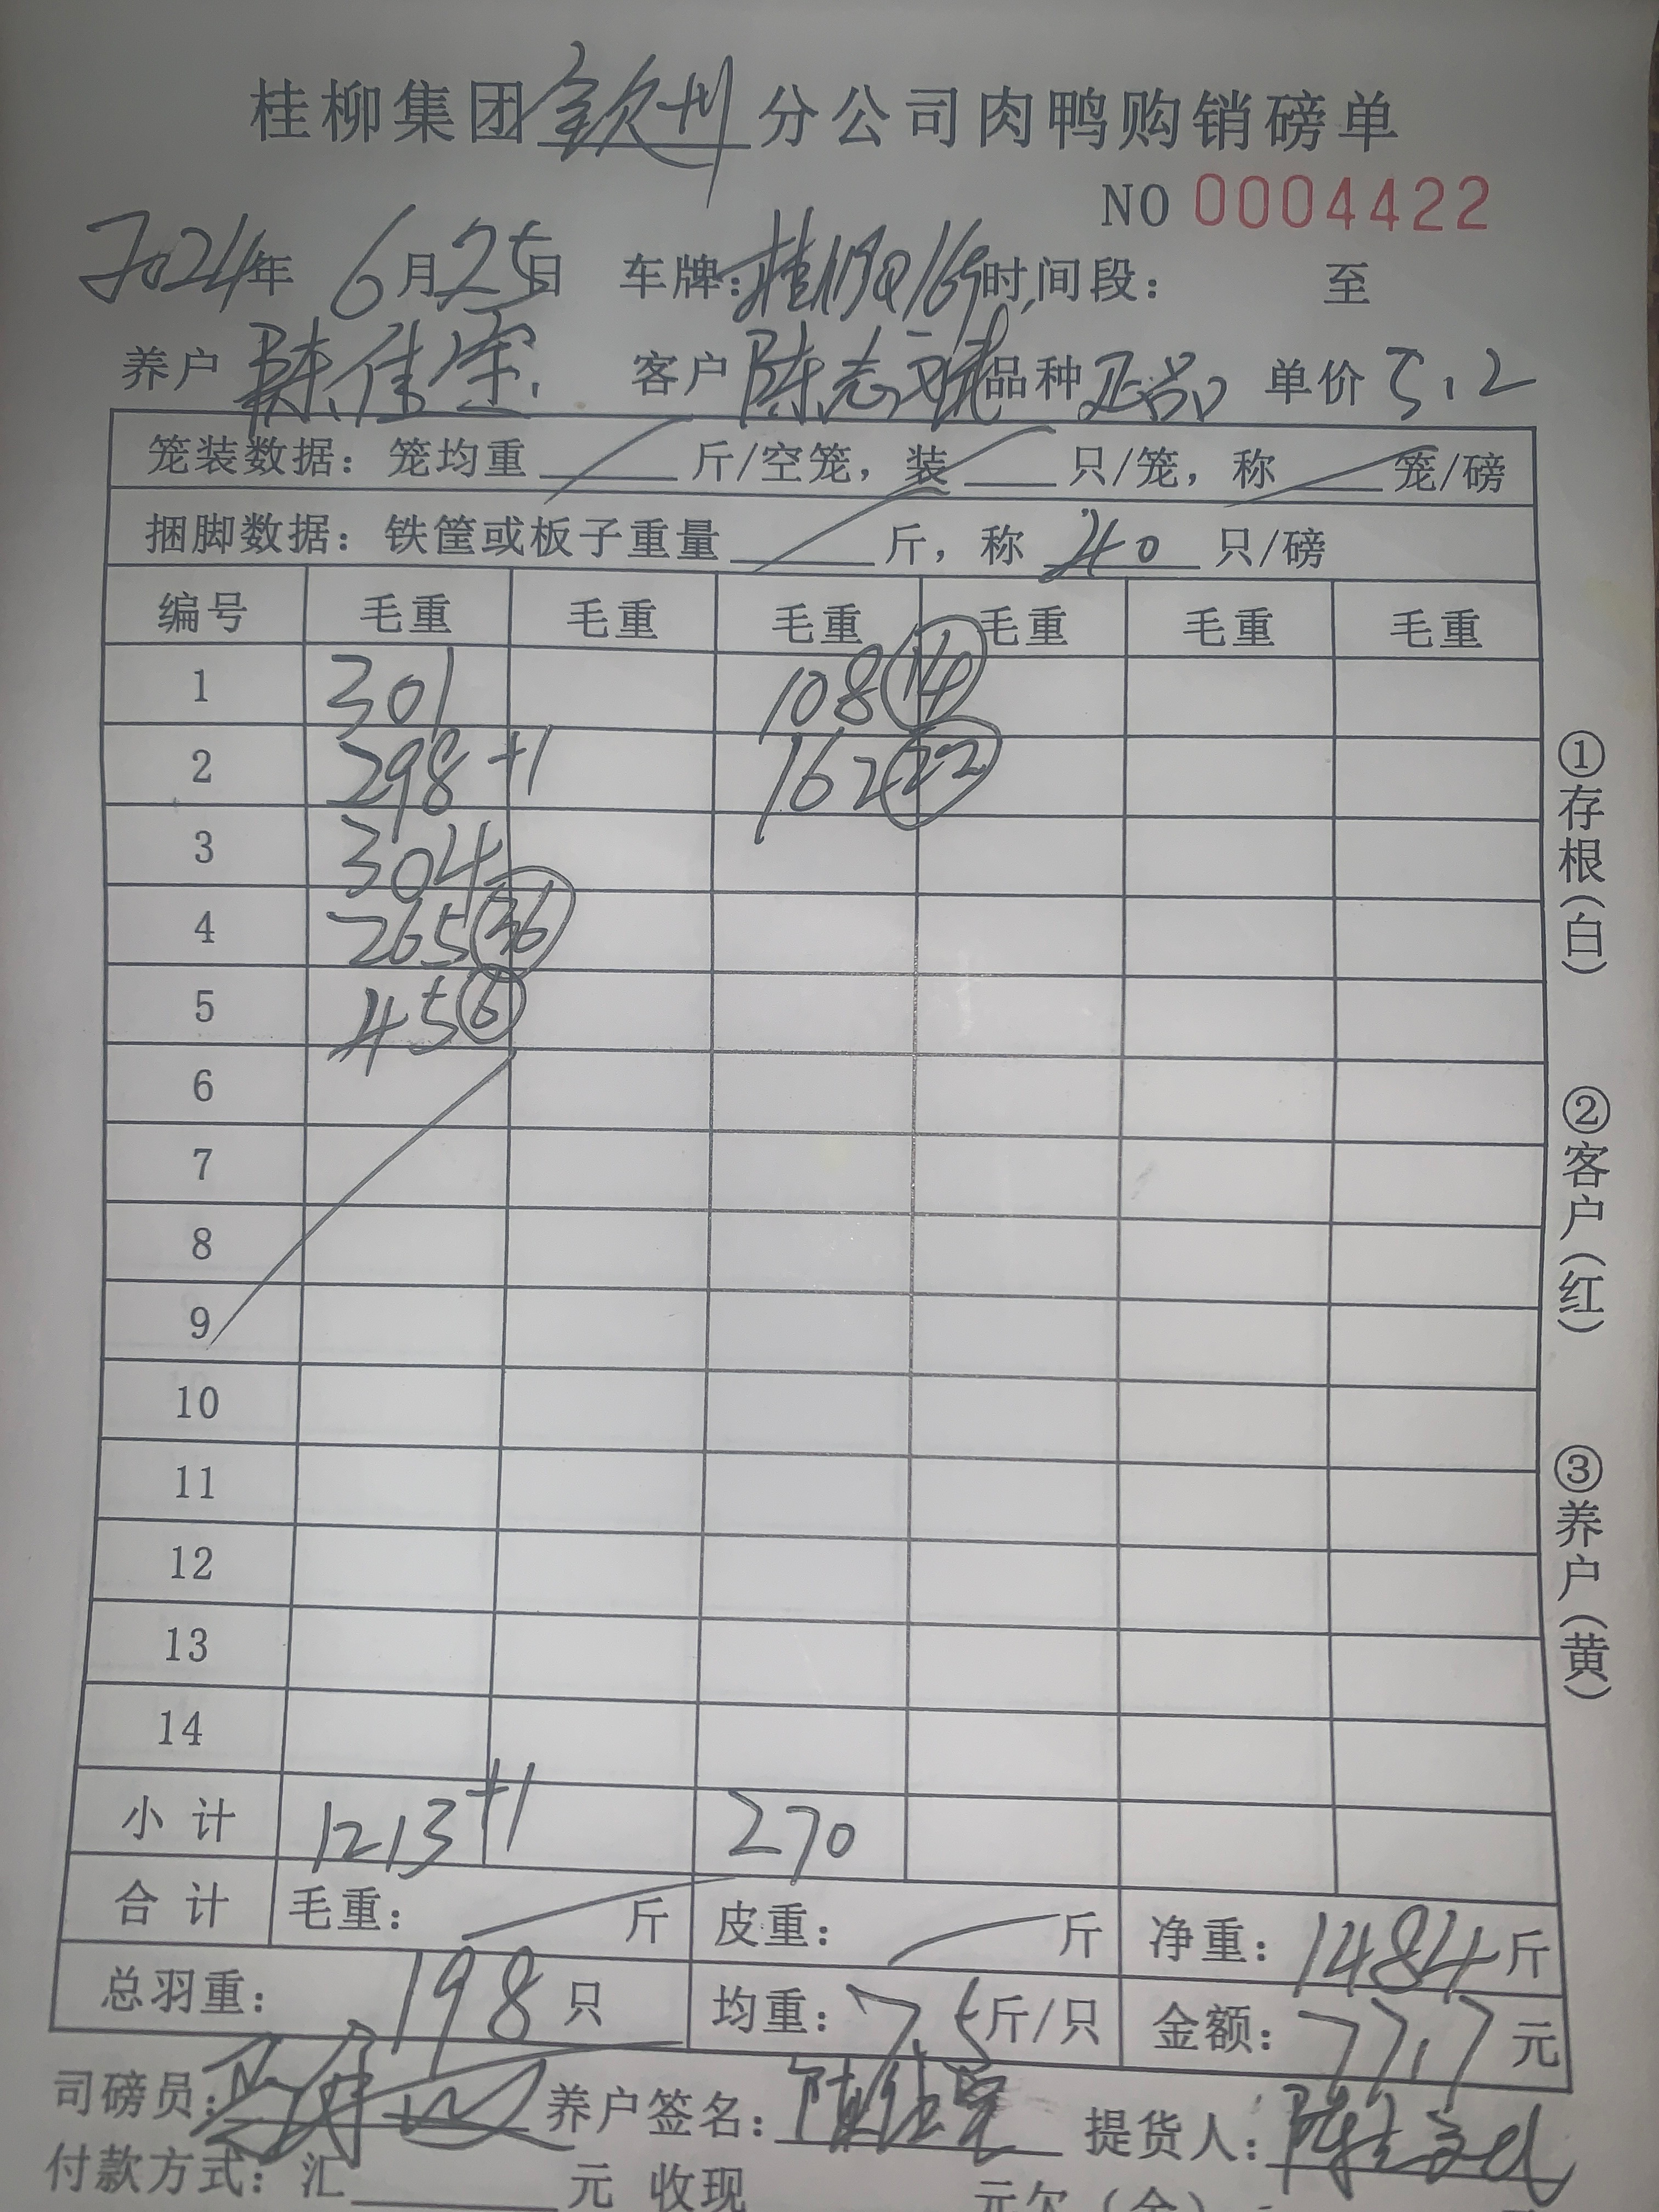 桂柳集团钦州分公司肉鸭购销磅单
NO 0004422
2024年 6月25日 车牌:桂 时间段: 至
养户 陈佳宝 客户 陈志 品种 正品 单价 5.2
笼装数据: 笼均重 斤/空笼, 装 只/笼, 称 笼/磅
捆脚数据: 铁筐或板子重量 斤, 称 40 只/磅
编号 毛重 毛重 毛重 毛重 毛重 毛重
1 301 108 14
2 298 +1 162 22
3 304
4 265 36
5 45 6
6
7
8
9
10
11
12
13
14
小计 1213 +1 270
合计 毛重: 斤 皮重: 斤 净重: 1484 斤
总羽重: 198 只 均重: 7.5 斤/只 金额: 7717 元
司磅员: 养户签名: 陈佳宝 提货人: 陈志
付款方式: 汇 元 收现 元欠(余):
①存根(白)
②客户(红)
③养户(黄)